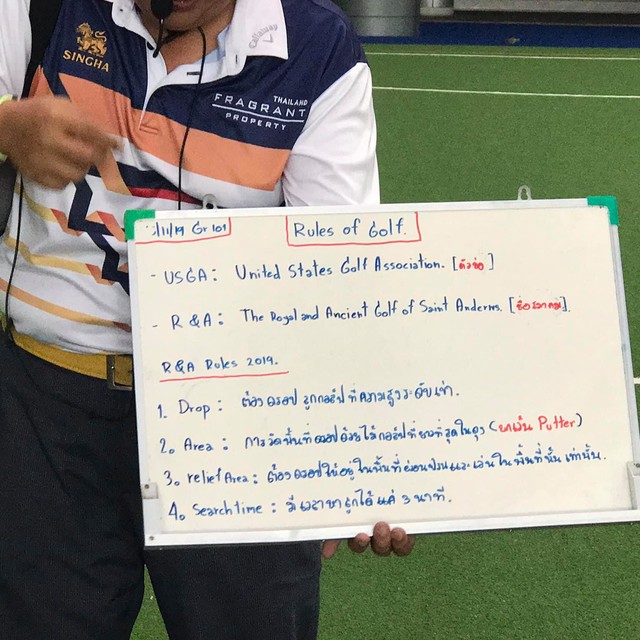 SINGHA
Callaway
THAILAND
FRAGRANT
PROPERTY
/11/19 Gr 101
Rules of Golf.
- USGA : United States Golf Association. [ตัวย่อ]
- R & A : The Royal and Ancient Golf of Saint Anderws. [ชื่อ].
R&A Rules 2019.
1. Drop : ต้อง ดรอป ลูกกอล์ฟ ที่ความสูงระดับเข่า.
2. Area : การวัดพื้นที่ดรอปต้องใช้กอล์ฟที่ยาวที่สุดในถุง (ยกเว้น Putter)
3. relief Area : ต้องดรอปให้อยู่ในพื้นที่ผ่อนปรนและเล่นในพื้นที่นั้นเท่านั้น.
4. Search time : มีเวลาหาลูกได้แค่ 3 นาที.